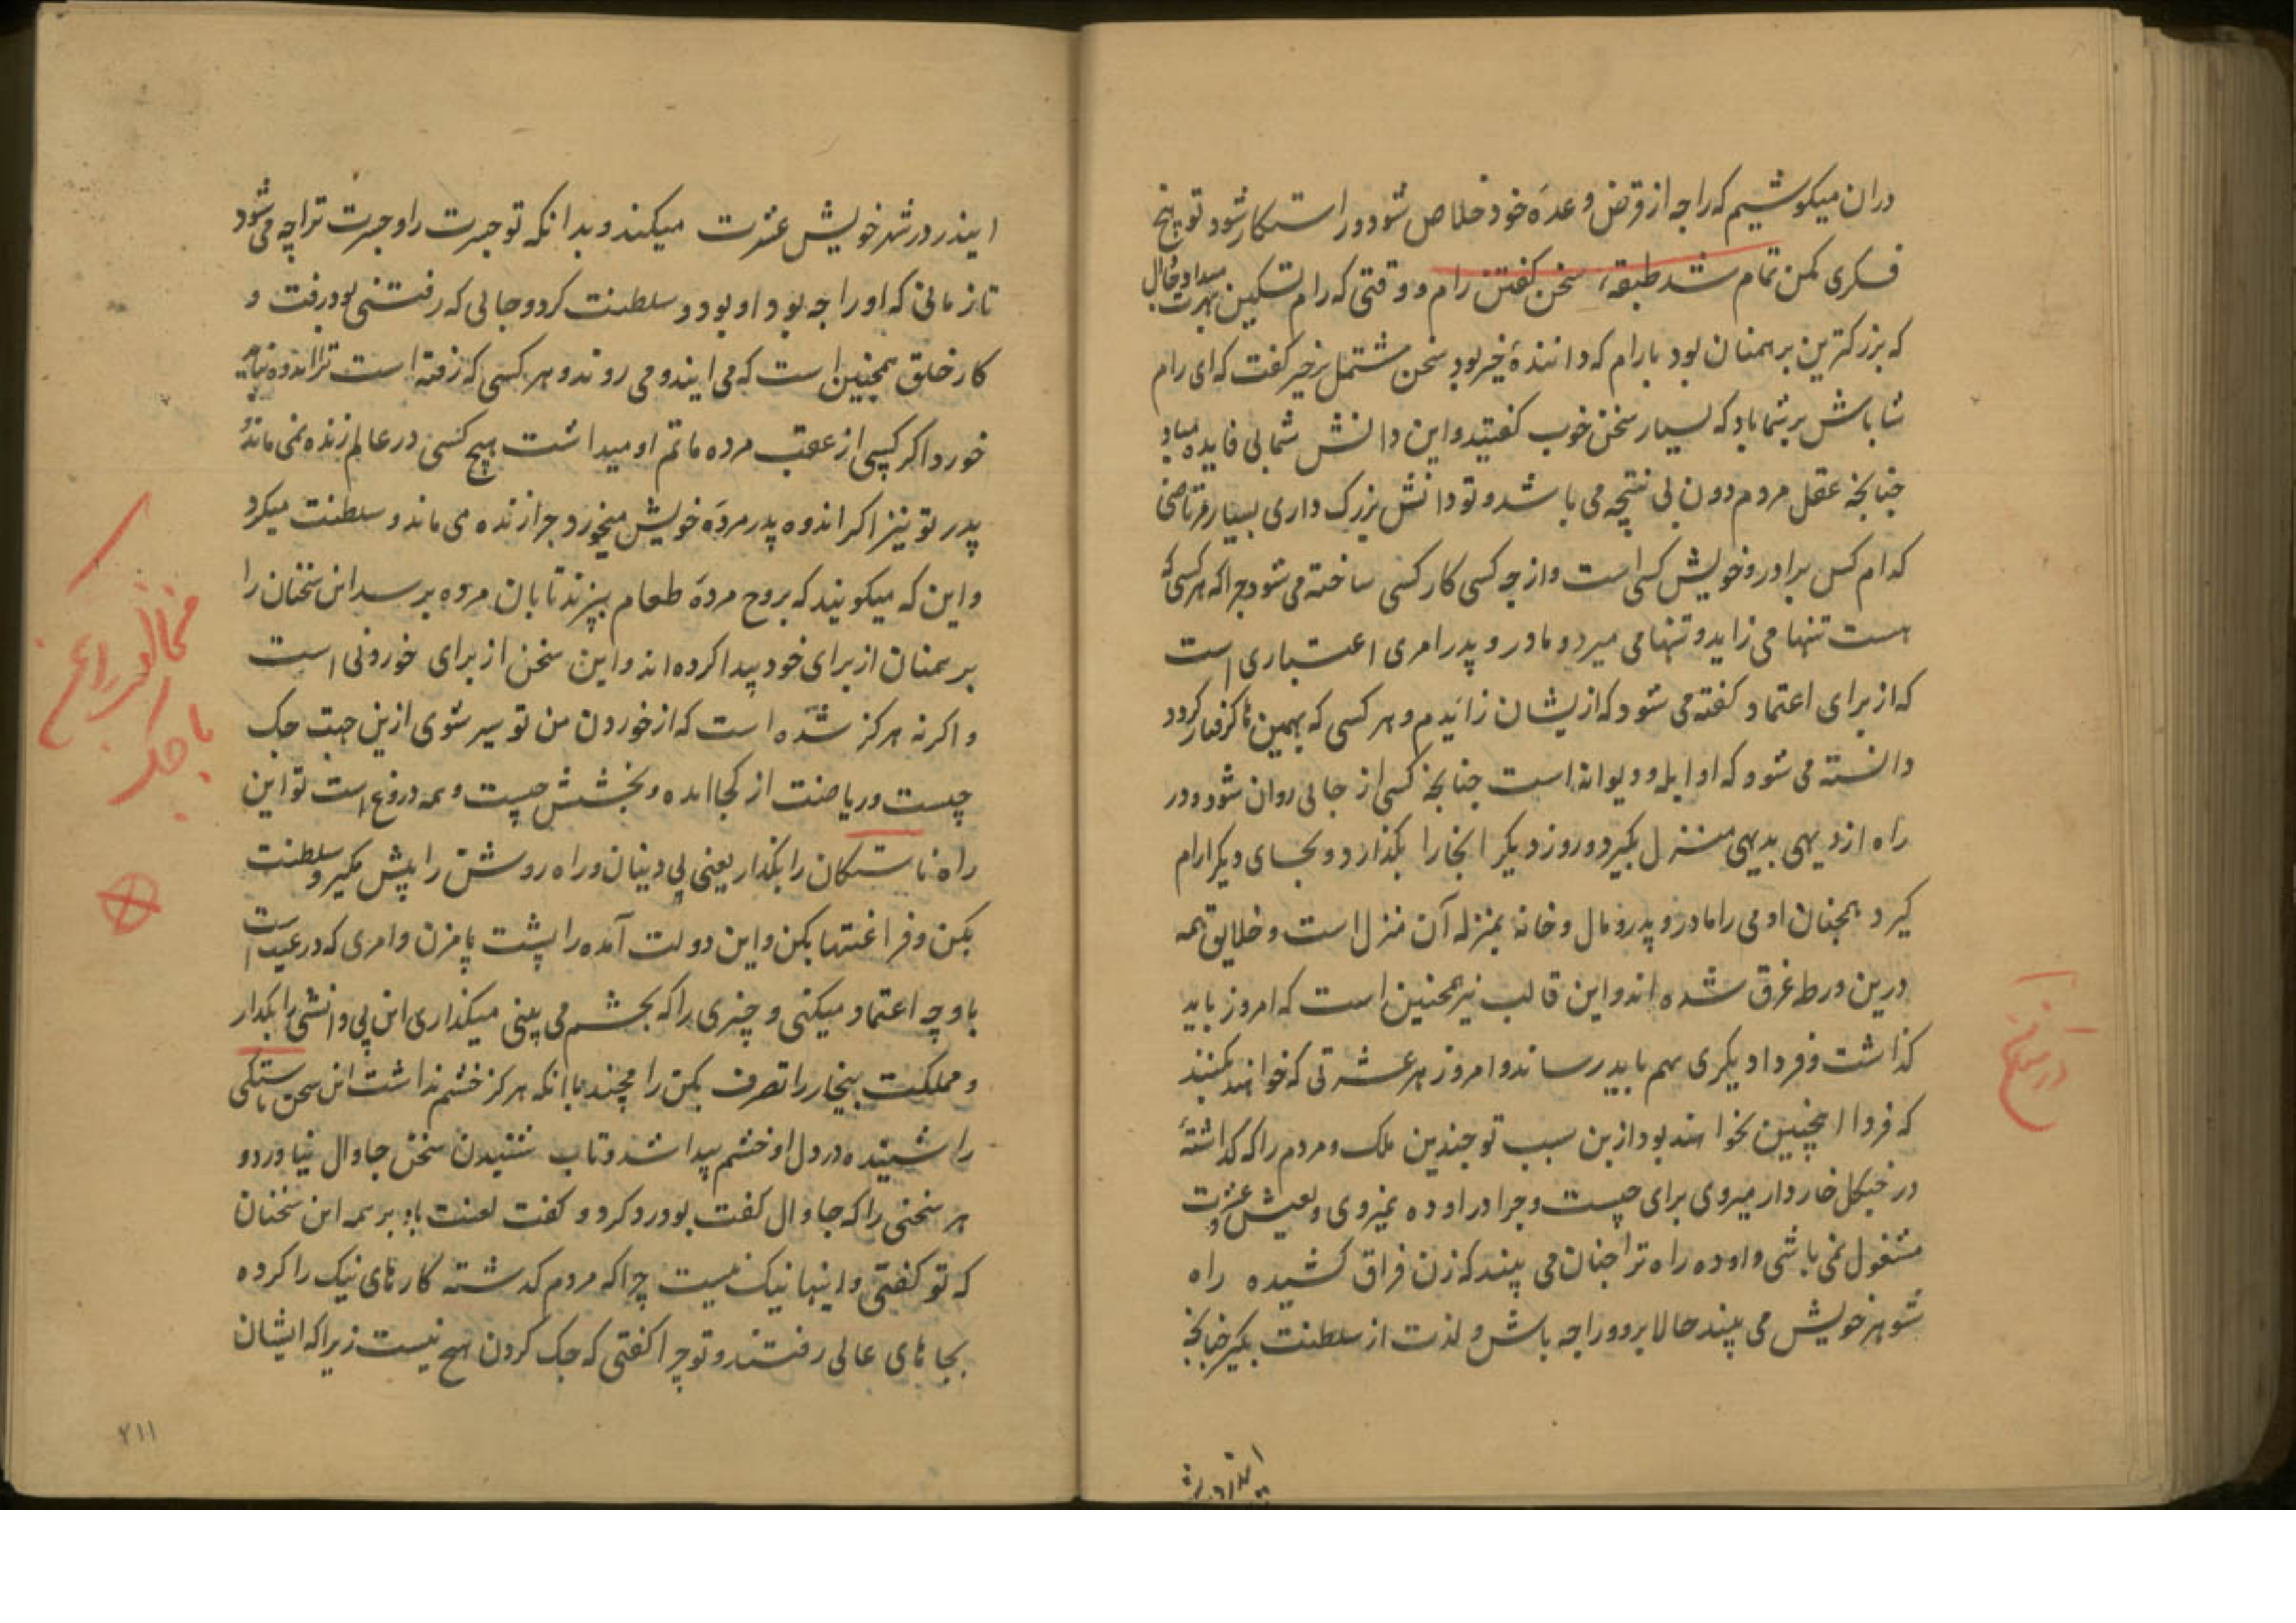 دران میکوشیم که راجه از قرض وعدهٔ خود خلاص شود و راستکار شود تو هیچ
فکری مکن تمام شد طبقهٔ سخن کفتن رام و وقتی که رام تسکین بهرت میداد جاوال
که بزرکترین برهمنان بود بارام که دانندهٔ خیر بود سخن مشتمل بر خیر کفت که ای رام
شاباش بر شما باد که بسیار سخن خوب کفتید و این دانش شما بی فایده مباد
چنانچه عقل مردم دون بی نتیجه می باشد و تو دانش بزرک داری بسیار مرتاضی
کدام کس برادر و خویش کسی است و از چه کسی کار کسی ساخته می شود چرا که هر کسی که
هست تنها می زاید و تنها می میرد و مادر و پدر امری اعتباری است
که از برای اعتماد کفته می شود که ازیشان زائیدم و هر کسی که بهمین ها کرفتار کردد
دانسته می شود که او ابله و دیوانه است چنانچه کسی از جائی روان شود و در
راه از دیهی بدیهی منزل بکیرد و روز دیکر انجا را بکذارد و بجای دیکر ارام
کیرد همچنان ادمی را مادر و پدر و مال و خانه بمنزله آن منزل است و خلایق همه
درین ورطه غرق شده اند و این قالب نیز همچنین است که امروز باید
کذاشت و فردا دیکری بهم باید رساند و امروز هر عشرتی که خواهند بکنند
که فردا اینچنین نخواهند بود ازین سبب تو چندین ملک و مردم را که کذاشتهٔ
در جنکل خاردار میروی برای چیست و چرا در اوده نمیروی و بعیش و عشرت
مشغول نمی باشی و اوده راه ترا چنان می بیند که زن فراق کشیده راه
شوهر خویش می بیند حالا برو و راجه باش و لذت از سلطنت بکیر چنانچه
ایندر در شهر
در ساخ
ایندر در شهر خویش عشرت میکند و بدانکه تو جسرت را و جسرت ترا چه می شود
تا زمانی که او راجه بود او بود و سلطنت کرد و جائی که رفتنی بود رفت و
کار خلق همچنین است که می ایند و می روند و هر کسی که رفته است ترا اندوه نباید
خورد اکر کسی از عقب مرده ماتم او میداشت هیچ کسی در عالم زنده نمی ماند
پدر تو نیز اکر اندوه پدر مردهٔ خویش میخورد چرا زنده می ماند و سلطنت میکرد
و این که میکویند که بروح مردهٔ طعام بپزند تا بان مرده برسد این سخنان را
برهمنان از برای خود پیدا کرده اند و این سخن از برای خوردنی است
و اکر نه هرکز شده است که از خوردن من تو سیر شوی ازین جهت جک
چیست و ریاضت از کجا امده و بخشش چیست و همه دروغ است تو این
راه ناستکان را بکذار یعنی بی دینان و راه روشن را پیش بکیر و سلطنت
بکن و فراغتها بکن و این دولت آمده را پشت پا مزن و امری که در غیب است
باو چه اعتماد میکنی و چیزی را که بچشم می بینی میکذاری این بی دانشی را بکذار
و مملکت بیخار را تصرف بکن رامچند با انکه هرکز خشم نداشت این سخن ناستکی
را شنیده در دل او خشم پیدا شد و تاب شنیدن سخن جاوال نیاورد و
هر سخنی را که جاوال کفت بود رد کرد و کفت لعنت باد بر همه این سخنان
که تو کفتی و اینها نیک نیست چرا که مردم کذشته کارهای نیک را کرده
بجاهای عالی رفتند و تو چرا کفتی که جک کردن هیچ نیست زیرا که ایشان
با جک
۲۱۱